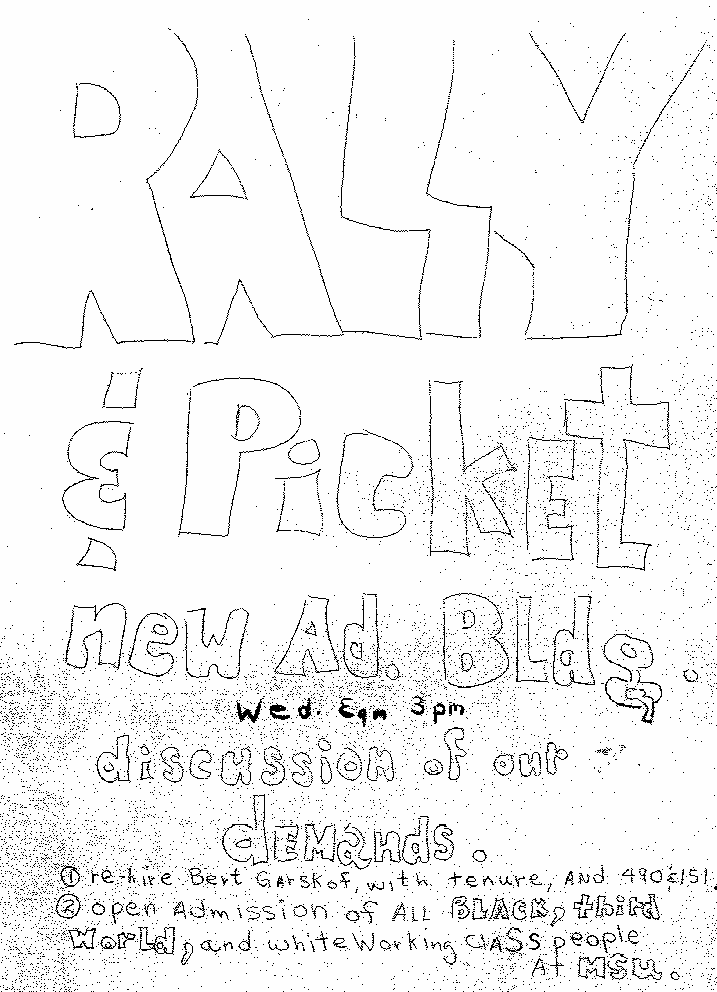 RALLY
& Picket
new Ad. BLdg.
Wed. 3pm
discussion of our
dEMands.
① re-hire Bert GArskof, with tenure, AND 490 & 151.
② open Admission of ALL BLACK, third
World, and white Working ClASS people
At MSU.